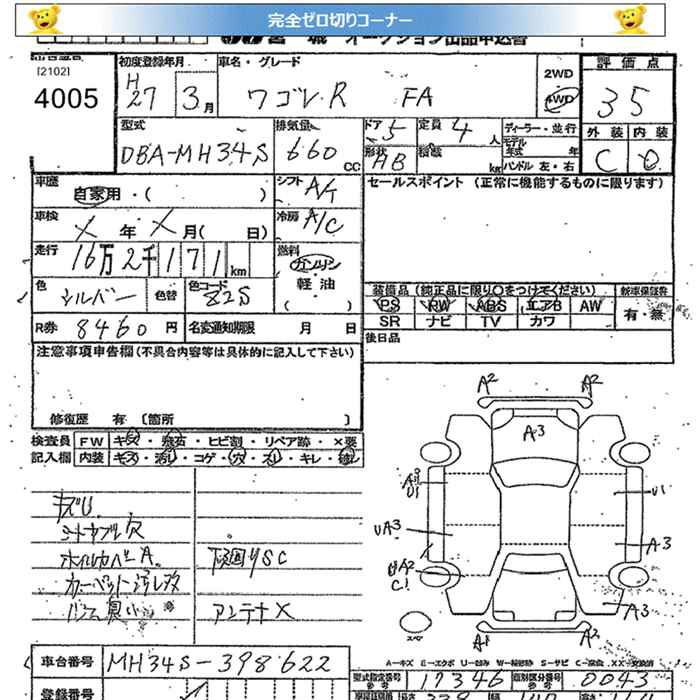 完全ゼロ切りコーナー
宮 城 オークション出品申込書
[2102]
4005
初度登録年月
H
27 3月
車名・グレード
ワゴンR FA
2WD
4WD
評価点
3 5
外装 内装
C D
型式
DBA-MH34S
排気量
660 CC
ドア 5
形状 AB
定員 4 人
積載 kg
ディーラー・並行
モデル
年式 年
ハンドル 左・右
車歴
自家用・( )
シフト
A/T
セールスポイント (正常に機能するものに限ります)
車検
年 月( 日)
冷房
A/C
走行
16万2千171 km
燃料
ガソリン
・
軽油
( )
色
シルバー
色替
色コード
82S
装備品(純正品に限り○をつけてください)
PS PW ABS エアB AW
SR ナビ TV カワ
新車保証書
有・無
R券 8460 円
名変通知期限 月 日
後日品
注意事項申告欄 (不具合内容等は具体的に記入して下さい)
修復歴 有 〔箇所 〕
検査員
記入欄
FW キズ・飛石・ヒビ割・リペア跡・×要
内装 キズ・汚レ・コゲ・穴・スレ・キレ・破レ
A2 A2
A3
U1
UA3
A3
C1
A3
A1 A2
シートカブレ穴
ホイルカバーA
下廻りSC
アンテナX
スペア
車台番号 MH34S-398622
A-キズ E-エクボ U-凹み W-補修跡 S-サビ C-腐蝕 XX-交換済
型式指定番号 17346
類別区分番号 0043
登録番号